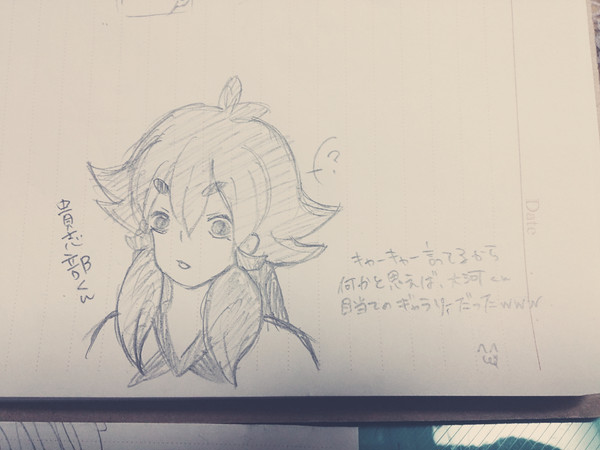 貴志部くん
?
キャーキャー言ってるから
何かと思えば、大河くん
目当てのギャラリーだったwww
Date